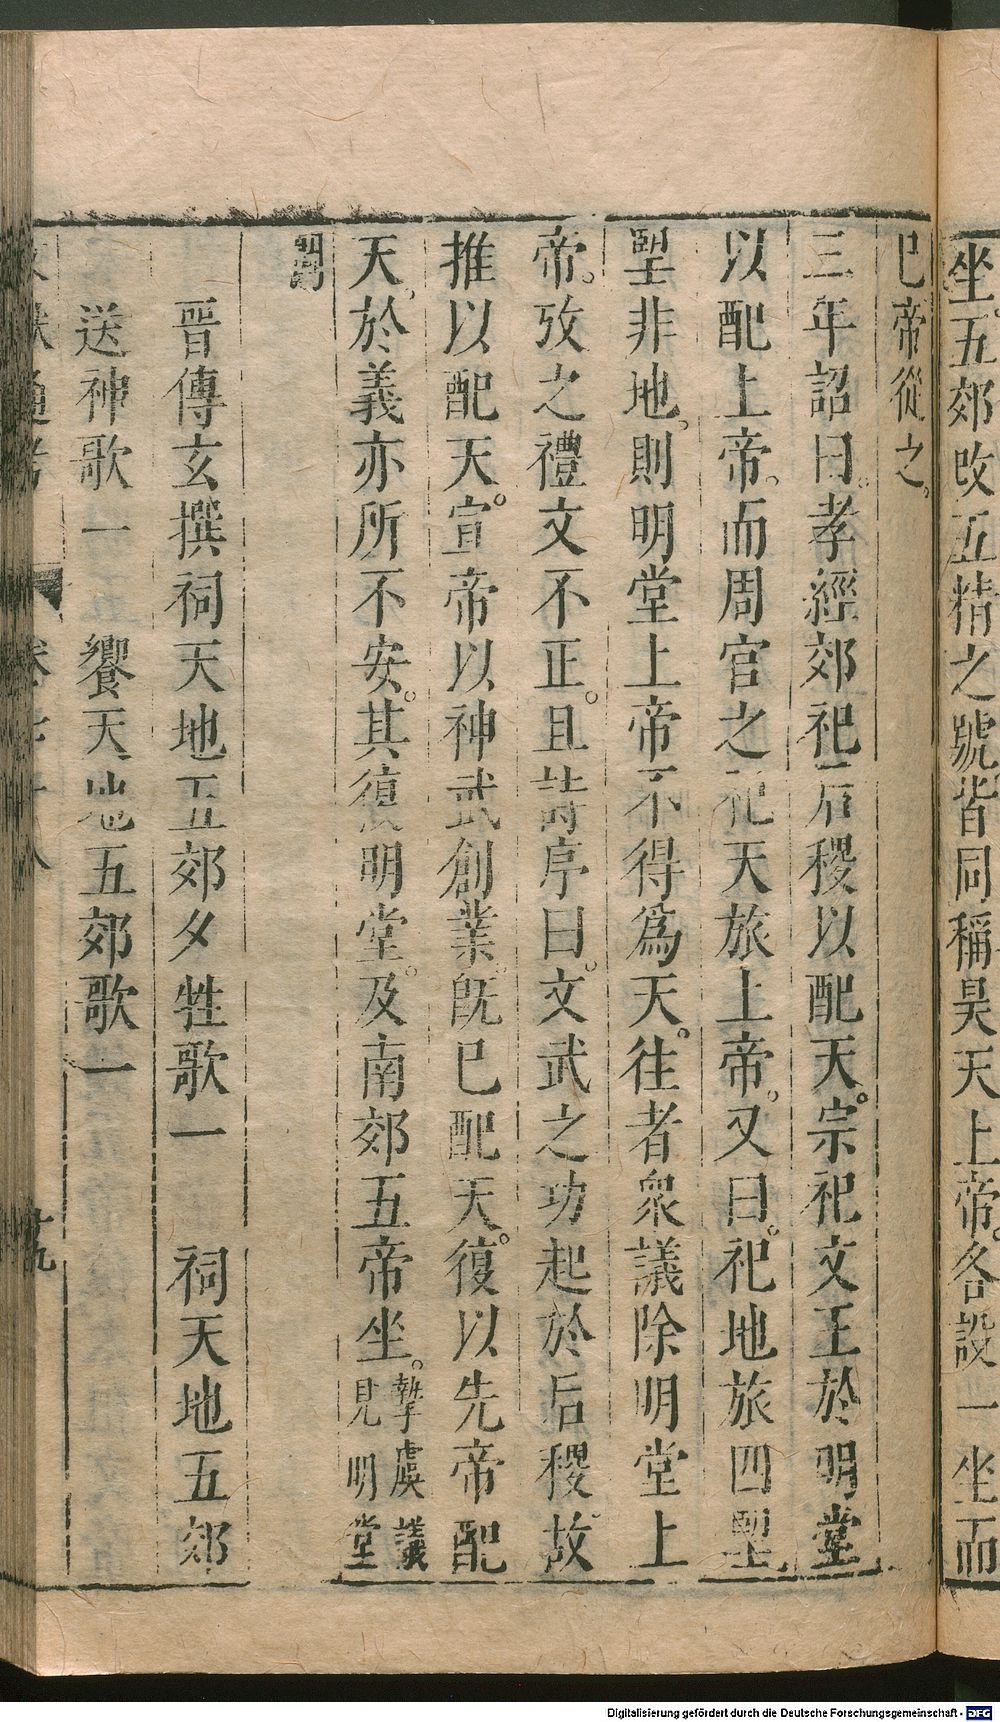 坐五郊改五精之號皆同稱昊天上帝各設一坐而
已帝從之
三年詔曰孝經郊祀后稷以配天宗祀文王於明堂
以配上帝而周官之祀天旅上帝又曰祀地旅四望
望非地則明堂上帝不得爲天往者衆議除明堂上
帝攷之禮文不正且詩序曰文武之功起於后稷故
推以配天宣帝以神武創業旣已配天復以先帝配
天於義亦所不安其復明堂及南郊五帝坐摯虞議見明堂
門
晉傳玄撰祠天地五郊夕牲歌一 祠天地五郊
送神歌一 饗天地五郊歌一
文獻通考 卷六十八 十九
Digitalisierung gefördert durch die Deutsche Forschungsgemeinschaft - DFG